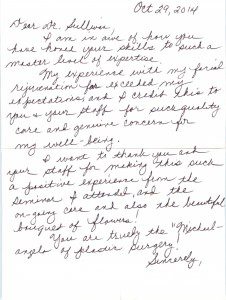 Oct 29, 2014
Dear Dr. Sullivan
I am in awe of how you
have honed your skills to such a
master level of expertise.
My experience with my facial
rejuvenation far exceeded my
expectations, and I credit this to
you & your staff for such quality
care and genuine concern for
my well-being.
I want to thank you and
your staff for making this such
a positive experience from the
seminar I attended, and the
on-going care and also the beautiful
bouquet of flowers!
You are truely the "Michel-
angelo of plastic surgery!
Sincerely,